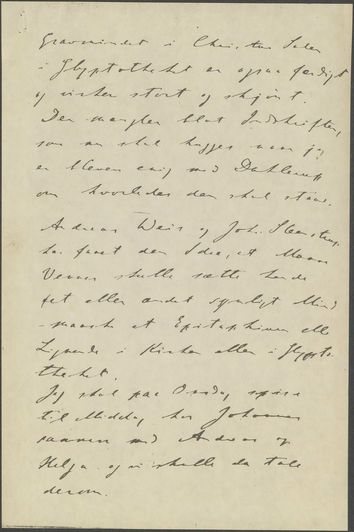 Gravmindet i Christus Salen
i Glyptotheket er ogsaa færdigt
og virker stort og skjønt.
Der mangler blot Indskriften,
som nu skal hugges naar jeg
er bleven enig med Dahlerup
om hvorledes den skal staae.
Andreas Weis og Joh. Steenstrup
har faaet den Idee, at Mama
Venner skulle sætte hende
et eller andet synligt Minde
- maaske et Epitaphium eller
Lignende i Kirken eller i Glypto-
theket.
Jeg skal paa Onsdag spise
til Middag hos Johannes
sammen med Andreas og
Helga og vi skulle da tale
derom.